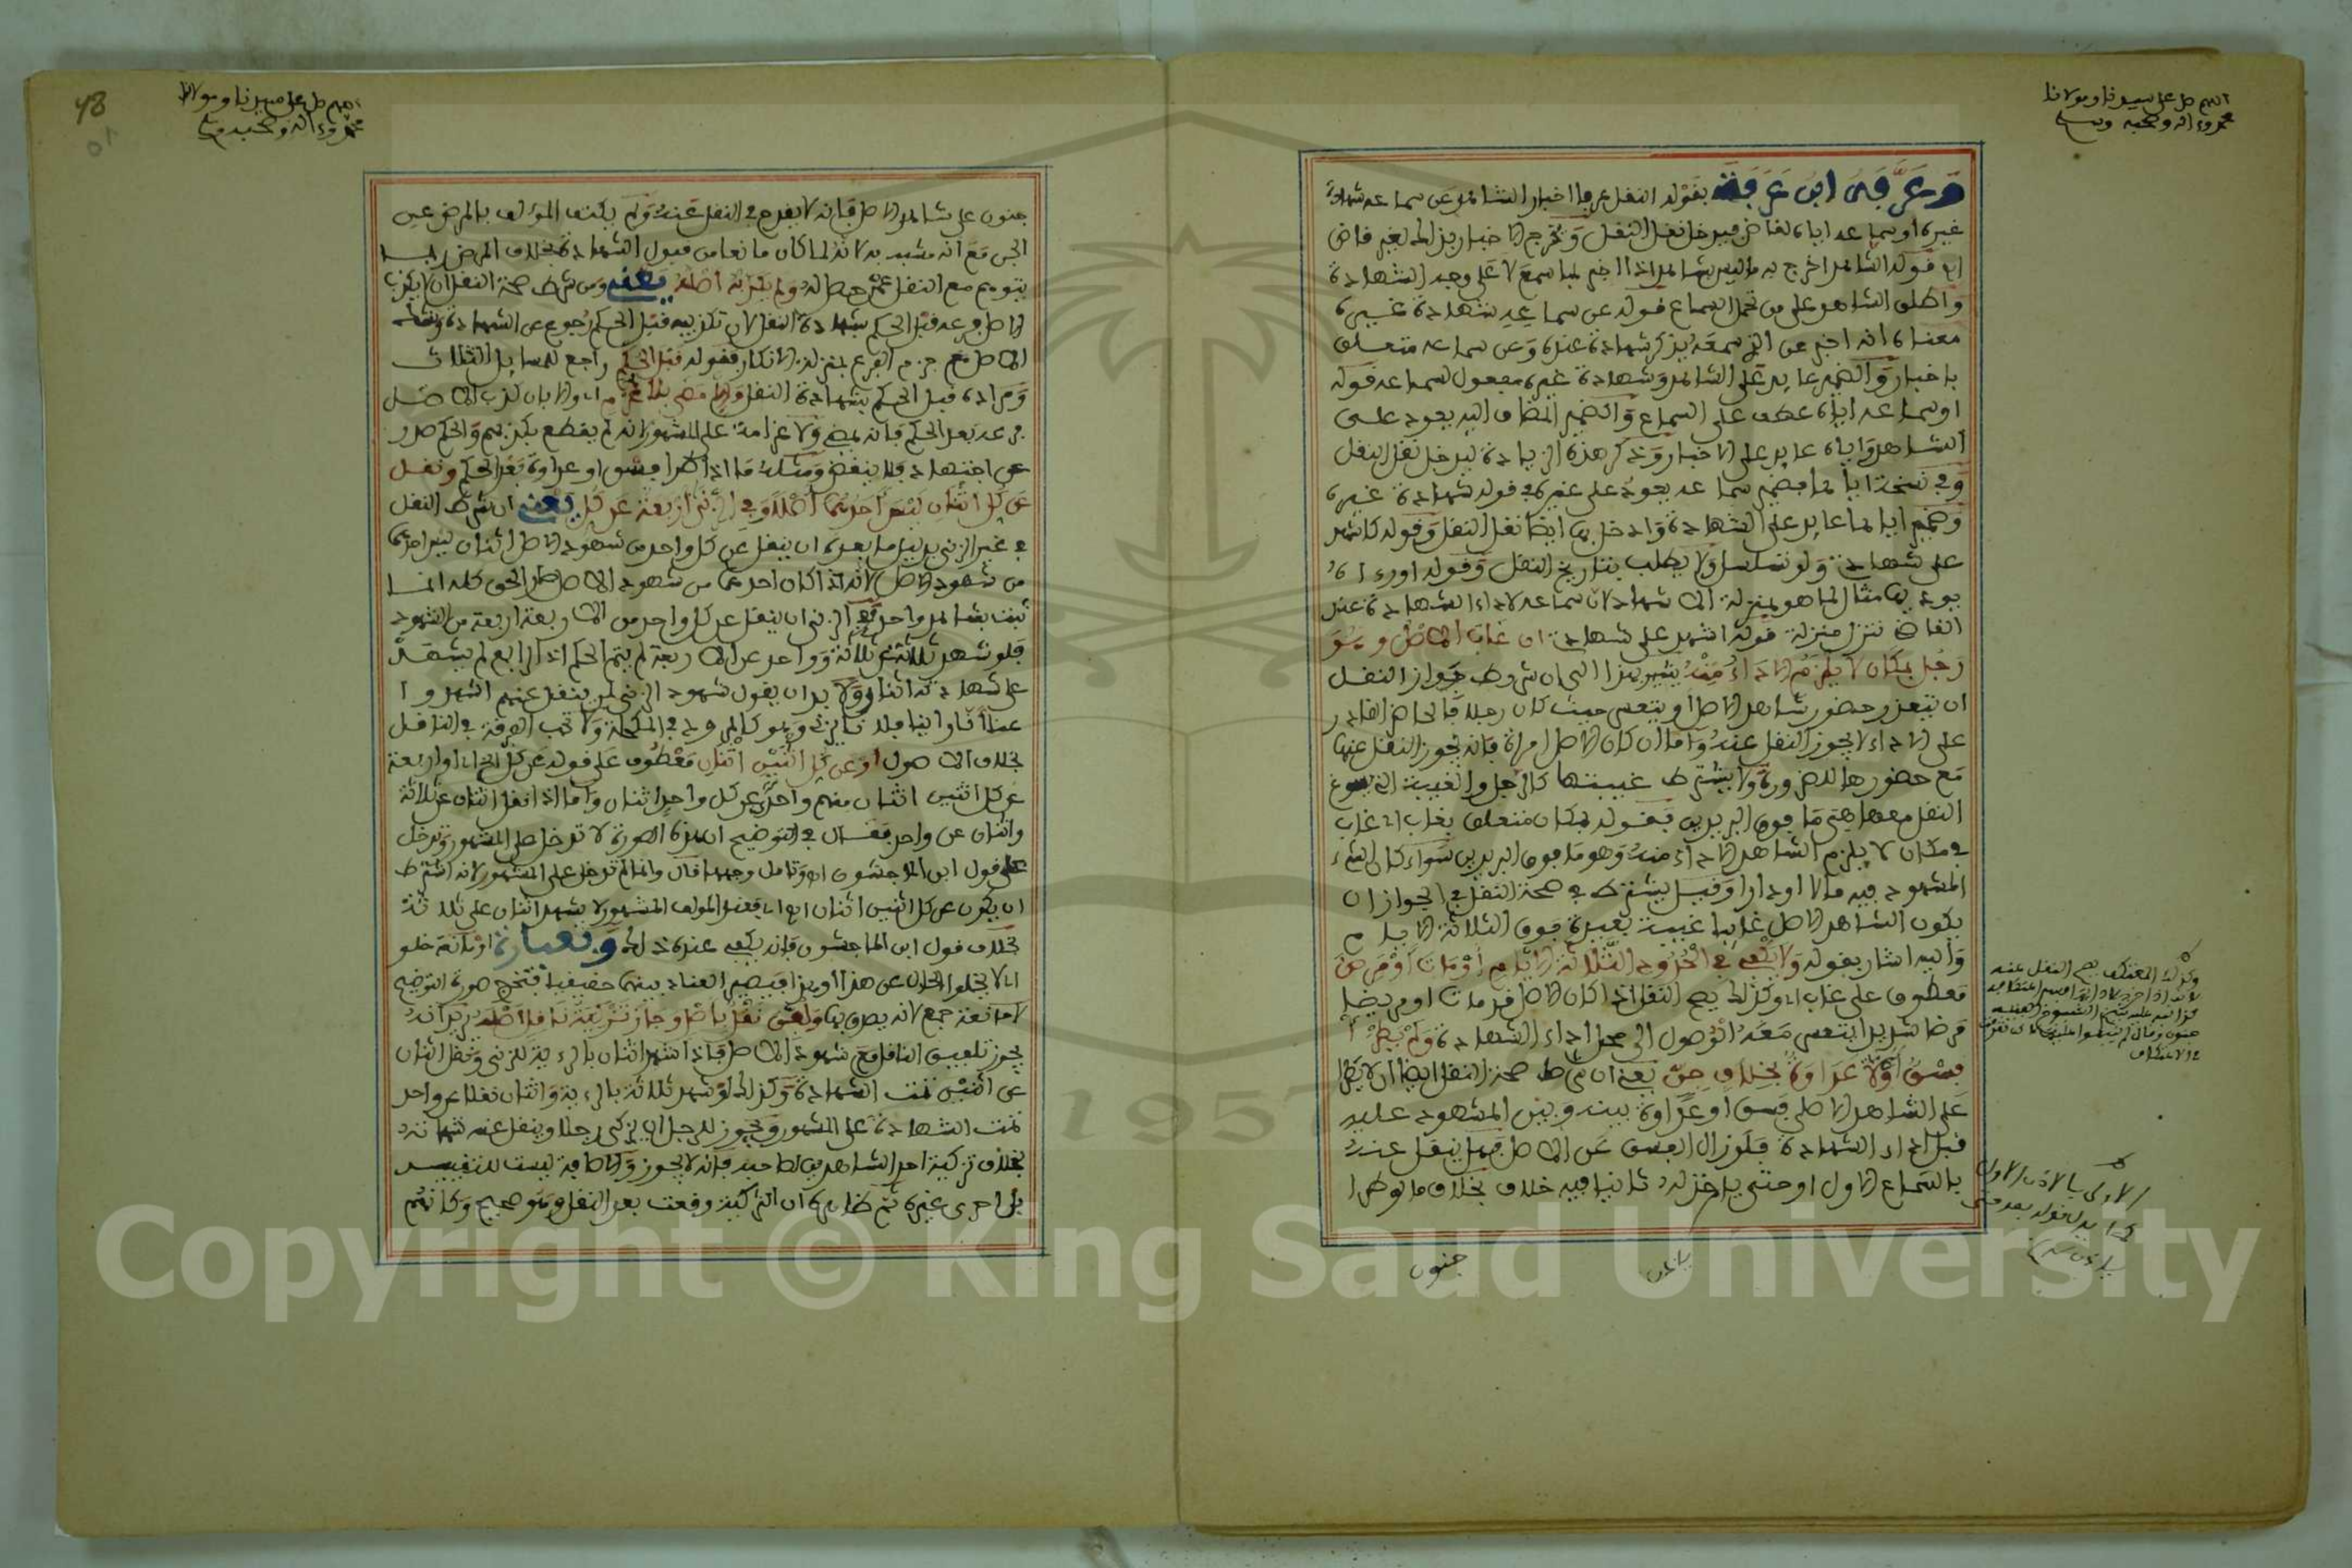 اللهم صل على سيدنا ومولانا
محمد وءاله وصحبه وسلم
وعرفه ابن عرفة بقوله النقل عرفا اخبار الشاهد عن سماعه شهادة
غيره او سماعه اياه لقاض فيدخل نقل النقل ويخرج الاخبار بذلك لغير قاض
قوله الشاهد اخرج به ما ليس بشاهد اذا اخبر بما سمع لا على وجه الشهادة
واطلق الشاهد على من تحمل السماع فوله عن سماعه شهادة غيره
معناه انه اخبر عن الذي سمعه يذكر شهادة عنده وعن سماعه متعلق
باخبار والضمير عايد على الشاهد وشهادة غيره مفعول لسماعه قوله
او سماعه اياه عطف على السماع والضمير المضاف اليه يعود على
الشاهد واياه عايد على الاخبار وذكر هذه الزيادة ليدخل نقل النقل
وفي نسخة اياها فضمير سماعه يعود على غيره في قوله شهادة غيره
وضمير اياها عايد على الشهادة وادخل بها ايضا نقل النقل وقوله كاشهد
على شهادتي ولو تسلسل ولا يطلب بتاريخ النقل وقوله او رءاه
يوديها مثال لما هو بمنزلة الاشهاد لان سماعه لاداء الشهادة عند
القاضي تنزل منزلة قوله اشهد على شهادتي ان غاب الاصل وهو
رجل بمكان لا يلزم الاداء منه يشير بهذا الى ان شروط جواز النقل
ان يتعذر حضور شاهد الاصل او يتعسر حيث كان رجلا فالحاضر القادر
على الاداء لا يجوز النقل عنه واما ان كان الاصل امراة فانه يجوز النقل عنها
مع حضورها للضرورة ولا يشترط غيبتها كالرجل والغيبة التي يسوغ
النقل معها هي ما فوق البريدين فقوله بمكان متعلق بغاب اي غاب
في مكان لا يلزم الشاهد الاداء منه وهو ما فوق البريدين سواء كان الشيء
المشهود فيه مالا او دارا وقيل يشترط في صحة النقل في الجواز ان
يكون الشاهد الاصل غايبا غيبة بعيدة فوق الثلاثة الايام
واليه اشار بقوله ولا يكفي في الحدود الثلاثة الايام او مات او مرض
معطوف على غاب اي وكذلك يصح النقل اذا كان الاصل قد مات او مريضا
مرضا شديدا يتعسر معه الوصول الى محل اداء الشهادة ولم يطرا
فسق او عداوة بخلاف جن يعني ان شرط صحة النقل ايضا ان لا يطرا
على الشاهد الاصلي فسق او عداوة بينه وبين المشهود عليه
قبل اداء الشهادة فلو زال الفسق عن الاصل فهل ينقل عنه
بالسماع الاول او حتى ياذن له ثانيا فيه خلاف بخلاف ما لو طرا
جنون
وكذلك المعتكف يصح النقل عنه
اللهم صل على سيدنا ومولانا
محمد وءاله وصحبه وسلم
48
51
جنون على شاهد الاصل فانه لا يقدح في النقل عنه ولم يكتف المؤلف بالمرض عن
الجن مع انه شبيه به لانه لما كان مانعا من قبول الشهادة بخلاف المرض ربما
يتوهم مع النقل عمن حصل له ولم يكذبه اصله يعني ومن شرط صحة النقل ان لا يكذب
الاصل فرعه قبل الحكم بشهادة النقل لان تكذيبه قبل الحكم رجوع عن الشهادة وشك
الاصل مع جزم الفرع بمنزلة الانكار فقوله قبل الحكم راجع للمسايل الثلاث
ومراده قبل الحكم بشهادة النقل والا مضى بلا غرم اي والا بان كذب الاصل
فرعه بعد الحكم فانه يمضي ولا غرامة على المشهور انه لم يقطع بكذبهم والحكم صدر
عن اجتهاد فلا ينقض ومثله ما اذا طرا فسق او عداوة بعد الحكم ونقل
عن كل اثنان ليس احدهما اصلا وفي الزنى اربعة عن كل يعني ان شرط النقل
في غير الزنى بدليل ما بعده ان ينقل عن كل واحد من شهود الاصل اثنان ليس احدهما
من شهود الاصل لانه اذا كان احدهما من شهود الاصل صار الحق كله انما
ثبت بشاهد واحد وفي الزنى ان ينقل عن كل واحد من الاربعة اربعة من الشهود
فلو شهد ثلاثة عن ثلاثة وواحد عن الاربعة لم يتم الحكم اذ الرابع لم يشهد
على شهادته اثنان ولا بد ان يقول شهود الزنى لمن ينقل عنهم اشهدوا
عنا اننا راينا فلانا يزني وهو كالمرود في المكحلة ولا تجب التفرقة في الناقل
بخلاف الاصول او عن كل اثنين اثنان معطوف على قوله عن كل اي او اربعة
عن كل اثنين اثنان منهم واحد عن كل واحد اثنان واما اذا نقل اثنان عن ثلاثة
واثنان عن واحد فقال في التوضيح ان هذه الصورة لا تدخل على المشهور وتدخل
على قول ابن الماجشون اه وتامل وجه ما قال وانما لم تدخل على المشهور لانه اشترط
ان يكون عن كل اثنين اثنان اه اي فعند المولف المشهور لا يشهد اثنان على ثلاثة
بخلاف قول ابن الماجشون فانه يكفي عنده ذلك وبعبارة او مانعة خلو
اي لا يخلو الحال عن هذا او هذا فيصير العناد بينهما حقيقيا فتخرج صورة التوضيح
لا مانعة جمع لانه يصدق بها ولفق نقل باصل وجاز تزكية ناقل اصله يريد انه
يجوز تلفيق النقل مع شهود الاصل فاذا شهد اثنان بالرءية للزنى ونقل اثنان
عن اثنين تمت الشهادة وكذلك لو شهد ثلاثة بالرءية واثنان نقلا عن واحد
تمت الشهادة على المشهور ويجوز للرجل ان يزكي رجلا وينقل عنه شهادته
بخلاف تزكية احد الشاهدين لصاحبه فانه لا يجوز والاضافة ليست للتقييد
بل احرى غيره ثم ظاهره ان التزكية وقعت بعد النقل وهو صحيح وكانهم
Copyright © King Saud University
1957